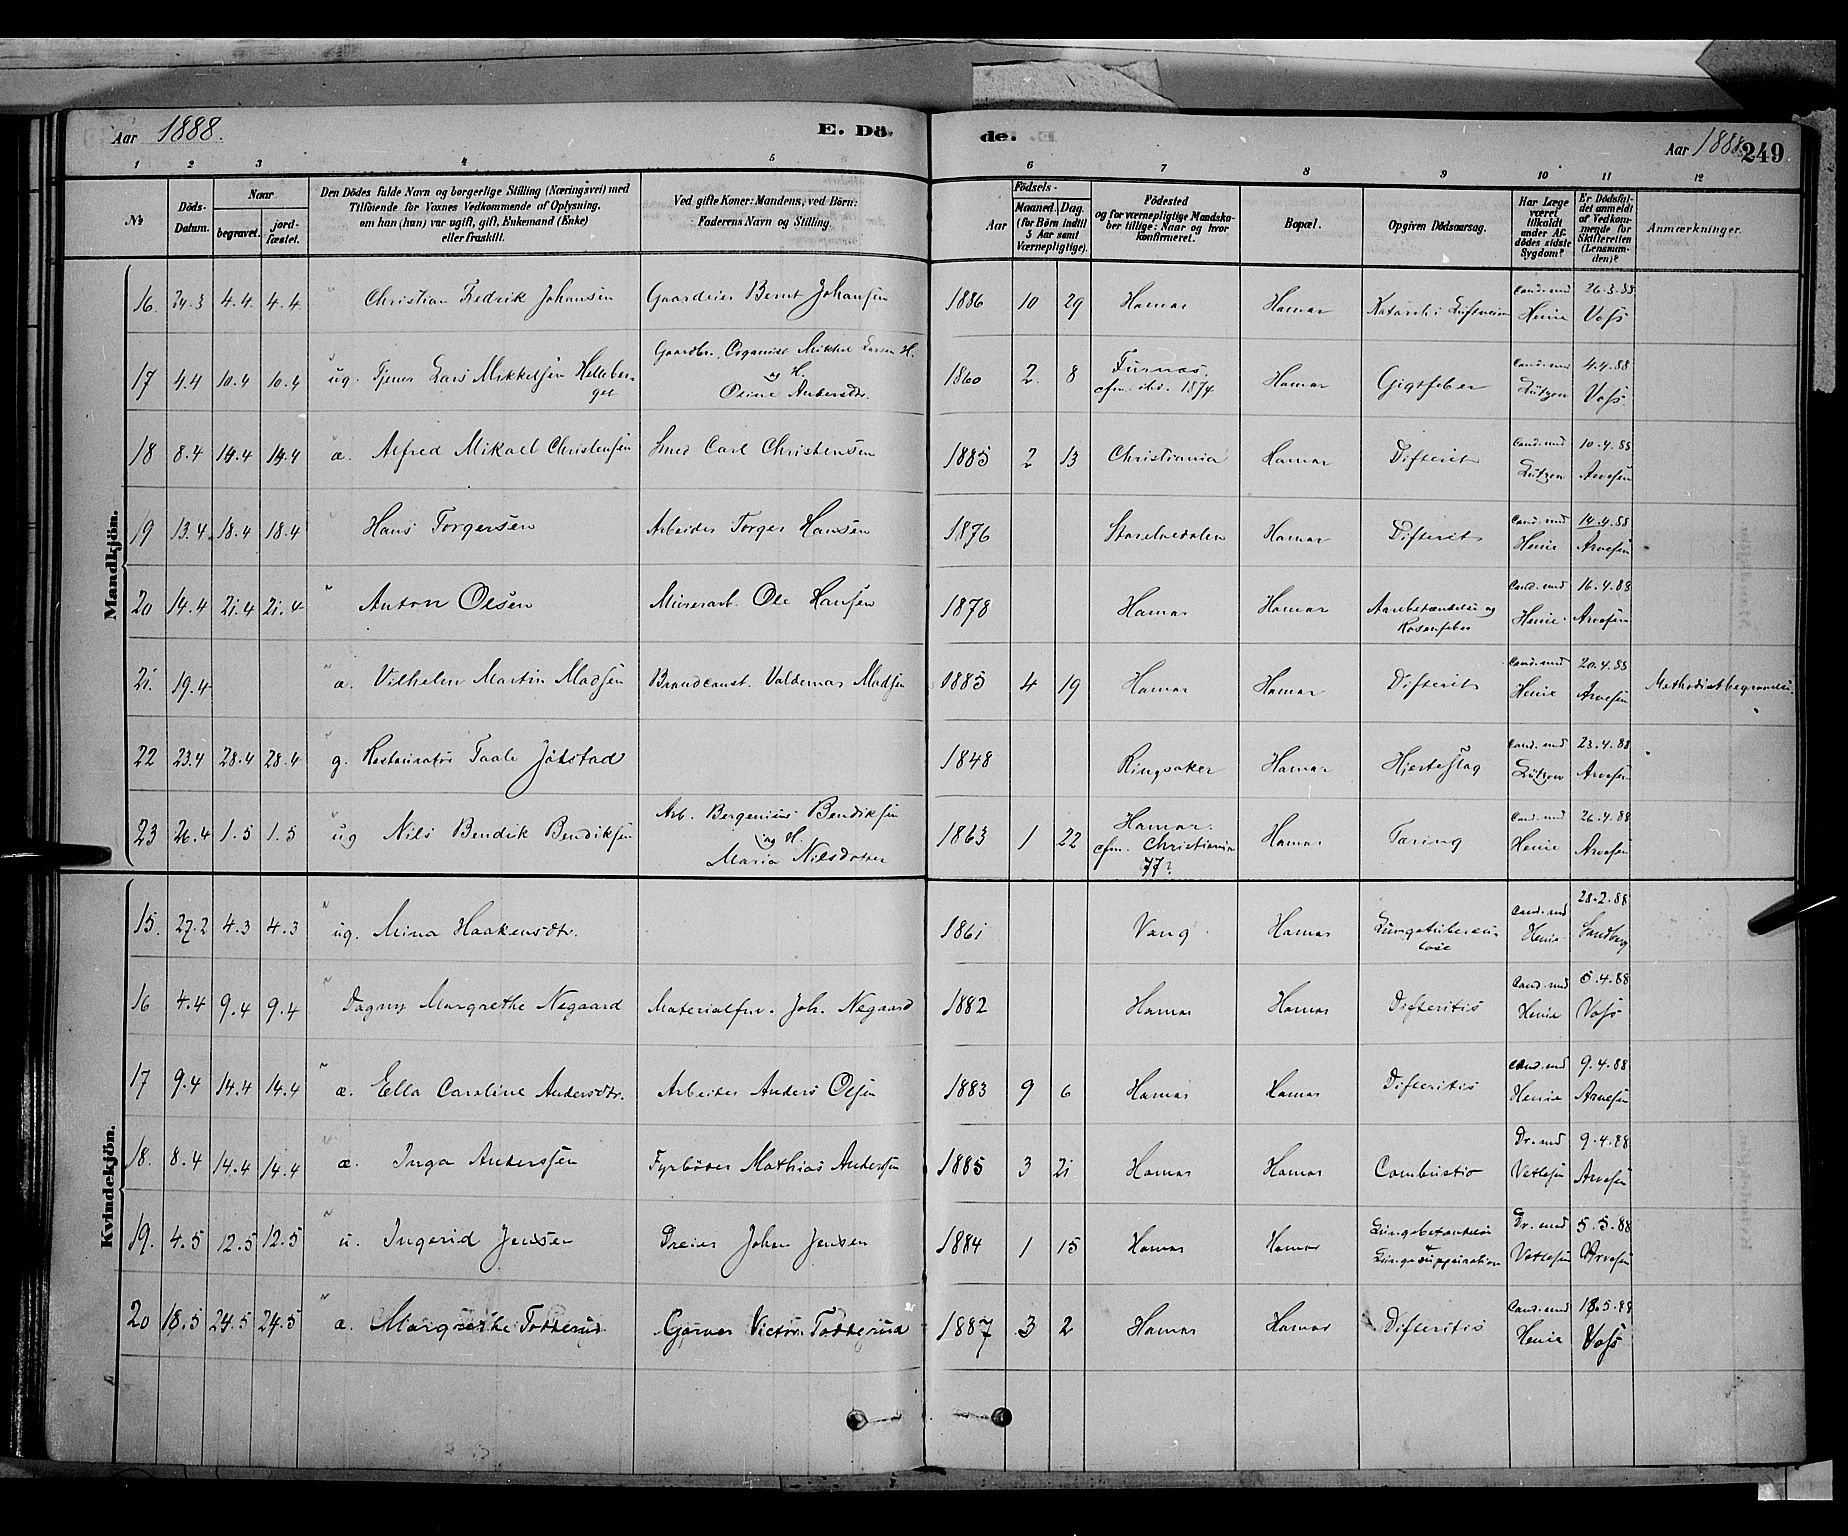 Aar 1888.
E. Dö-
de.
Aar 1888.
249
1 2 3 4 5 6 7 8 9 10 11 12
No
Döds-Datum.
Naar
begravet.
jord-fæstet.
Den Dödes fulde Navn og borgerlige Stilling (Næringsvei) med
Tilföiende for Voxnes Vedkommende af Oplysning,
om han (hun) var ugift, gift, Enkemand (Enke)
eller fraskilt.
Ved gifte Koner: Mandens, ved Börn:
Faderens Navn og Stilling.
Födsels-
Aar
Maaned.
Dag.
(for Börn indtil
5 Aar samt
Værnepligtige).
Födested
og for værnepligtige Mandska-
ber tillige: Naar og hvor
konfirmeret.
Bopæl.
Opgiven Dödsaarsag.
Har Læge
været
tilkaldt
under Af-
dödes sidste
Sygdom?
Er Dödsfal-
det anmeldt
af Vedkom-
mende for
Skifteretten
(Lensman-
den)?
Anmærkninger.
Mandkjön.
16. 24.3 4.4. 4.4. " Christian Fredrik Johansen Gaardeier Bernt Johansen 1886 10 29 Hamar Hamar Cand. med Henie 26.3.88 Voss
17 4.4 10.4 10.4 ug. Tjener Lars Mikkelsen Helleberget Gaardbr., Organist Mikkel Larsen H. og H. Oline Andersdtr. 1860 2. 8 Furnæs, cfm. ibd. 1874 Hamar Gigtfeber Cand. med Lützow 4.4.88 Voss.
18 8.4 14.4 14.4 " æ. Alfred Mikael Christensen Smed Carl Christensen 1885 2 13 Christiania Hamar Difterit Cand. med Lützow 10.4.88 Arvesen
19 13.4. 18.4 18.4 " Hans Torgersen Arbeider Torger Hansen 1876 Storelvedalen Hamar Difterit Cand. med Henie 14.4.88 Arvesen
20 14.4 21.4 21.4 " Anton Olsen Murerarb. Ole Hansen 1878 Hamar Hamar Cand. med Henie 16.4.88 Arvesen
21. 19.4 " æ. Vilhelm Martin Madsen Brandconst. Valdemar Madsen 1885 4 19 Hamar Hamar Difterit Cand. med Henie 20.4.88 Arvesen Methodistbegravelse.
22 23.4 28.4 28.4 " g. Restauratør Taale Jølstad 1848 Ringsaker Hamar Hjerteslag Cand. med Lützow 23.4.88 Arvesen
23 26.4 1.5 1.5 " ug Nils Bendik Bendiksen Arb. Bergenius Bendiksen og H. Maria Nilsdotter 1863 1 22 Hamar. cfm. Christiania 77? Hamar Tæring Cand. med Henie 26.4.88 Arvesen
Kvindekjön.
15. 27.2 4.3 4.3 " ug. Mina Haakensdtr. 1861 Vang Hamar Lungetuberculose Cand. med Henie 28.2.88 Sandberg
16 4.4 9.4 9.4 " Dagny Margrethe Negaard Materialfrv. Joh. Negaard 1882 Hamar Hamar Difteritis Cand. med Henie 5.4.88 Voss
17 9.4 14.4 14.4 " æ. Ella Caroline Andersdtr. Arbeider Anders Olsen 1883 9 6 Hamar Hamar Difteritis Cand. med Henie 9.4.88 Arvesen
18. 8.4 14.4 14.4 " æ. Inga Anderssen Fyrbøder Mathias Anderssen 1885 3 21 Hamar Hamar Combustio Dr. med Vetlesen 9.4.88 Arvesen
19. 4.5 12.5 12.5 " u. Ingerid Jensen Dreier Johan Jensen 1884 1 15 Hamar Hamar Lungebetændelse Lungesuppuration Dr. med Vetlesen 5.5.88 Arvesen
20 18.5 24.5 24.5 " æ. Margrethe Totterud Garver Victor Totterud 1887 3 2 Hamar Hamar Difteritis Cand. med Henie 18.5.88 Voss